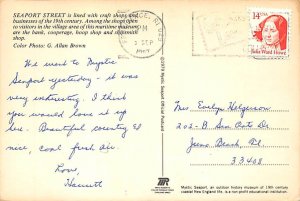 SEAPORT STREET is lined with craft shops and
businesses of the 19th century. Among the shops open
to visitors in the village area of this maritime museum
are the bank, cooperage, hoop shop and shipsmith
shop.
Color Photo: G. Allan Brown
14
Julia Ward Howe
PM
SEP
We went to Mystic
Seaport yesterday - it was
very interesting. I think
you would love it up
here. Beautiful country &
nice, cool fresh air.
Love,
Harriett
Mrs. Evelyn Helgerson
202-B
Juno Beach, Fl
33408
Mystic Seaport Official Postcard
Mystic Seaport, an outdoor history museum of 19th century
coastal New England life, is a non profit educational institution.